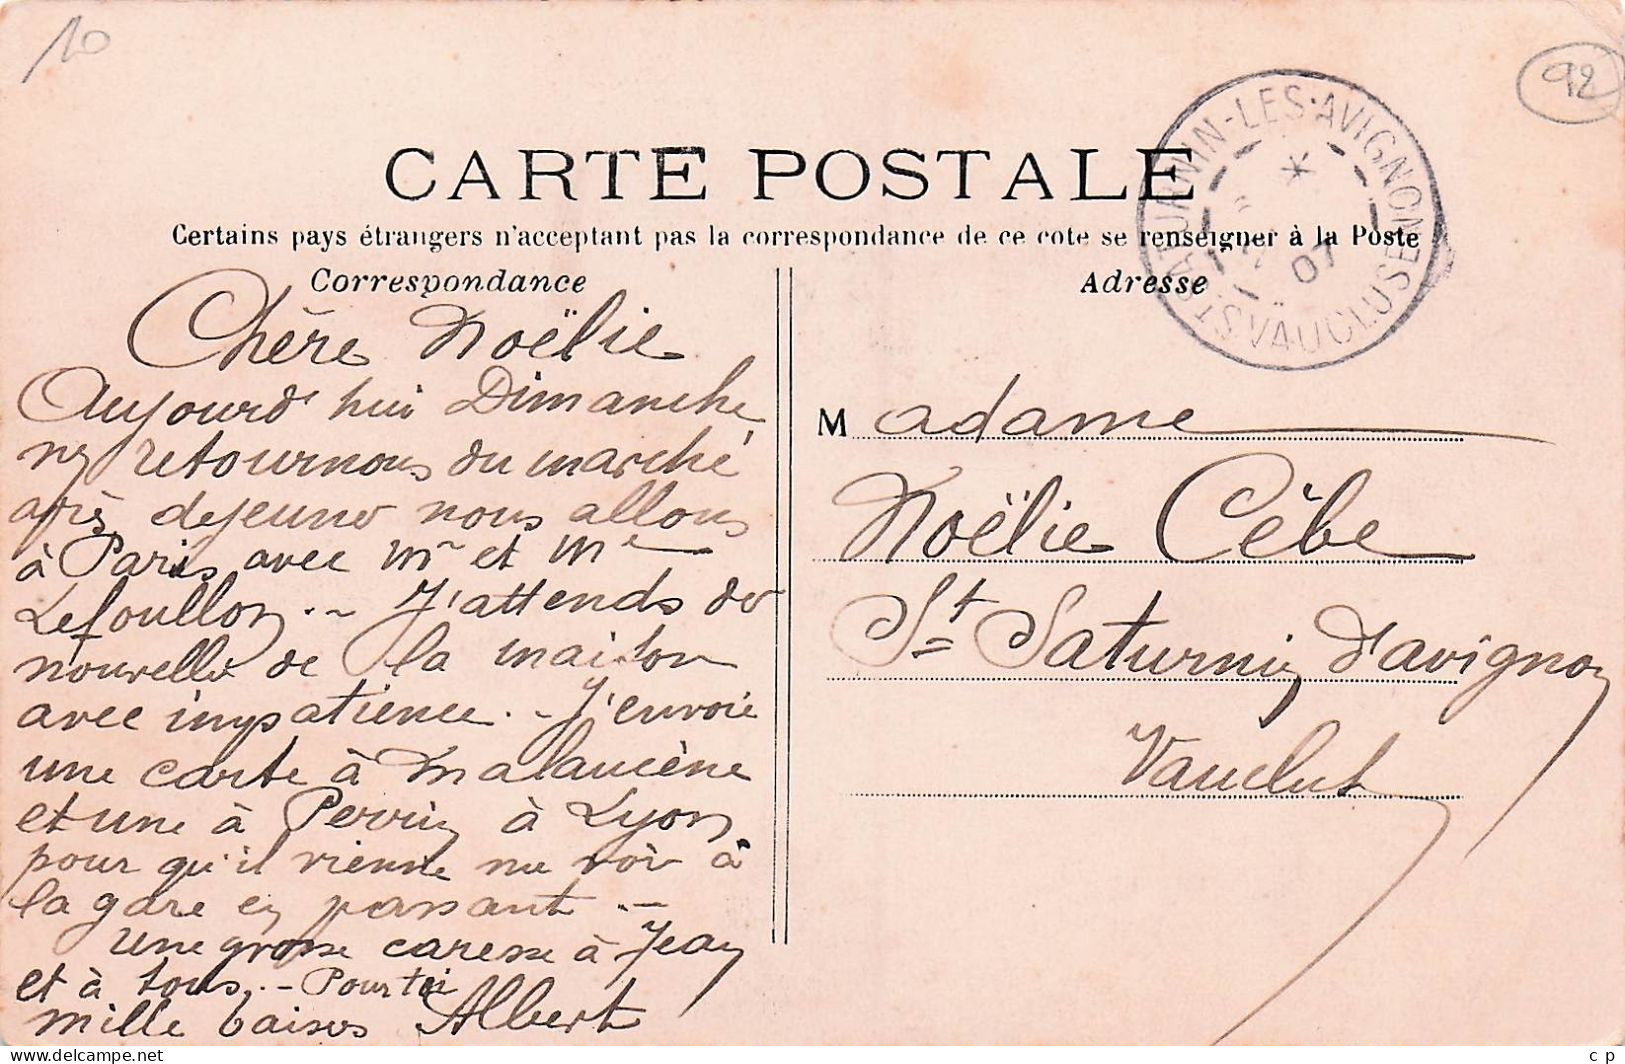 10
92
CARTE POSTALE
Certains pays étrangers n'acceptant pas la correspondance de ce cote se renseigner à la Poste
Correspondance
Adresse
ST SATURNIN-LES-AVIGNON
VAUCLUSE
07
Chère Noëlie
Aujourd'hui Dimanche
retournons du marché
après dejeuner nous allons
à Paris avec Mr et Me
Lefoullon .- J'attends de
nouvelle de la maison
avec impatience. - J'envoie
une carte à Malaucène
et une à Perrin à Lyon
pour qu'il vienne me voir à
la gare en passant .-
Une grosse caresse à Jean
et à tous. - Pour toi
mille baises Albert
Madame
Noëlie Cèbe
St Saturnin d'avignon
Vaucluse